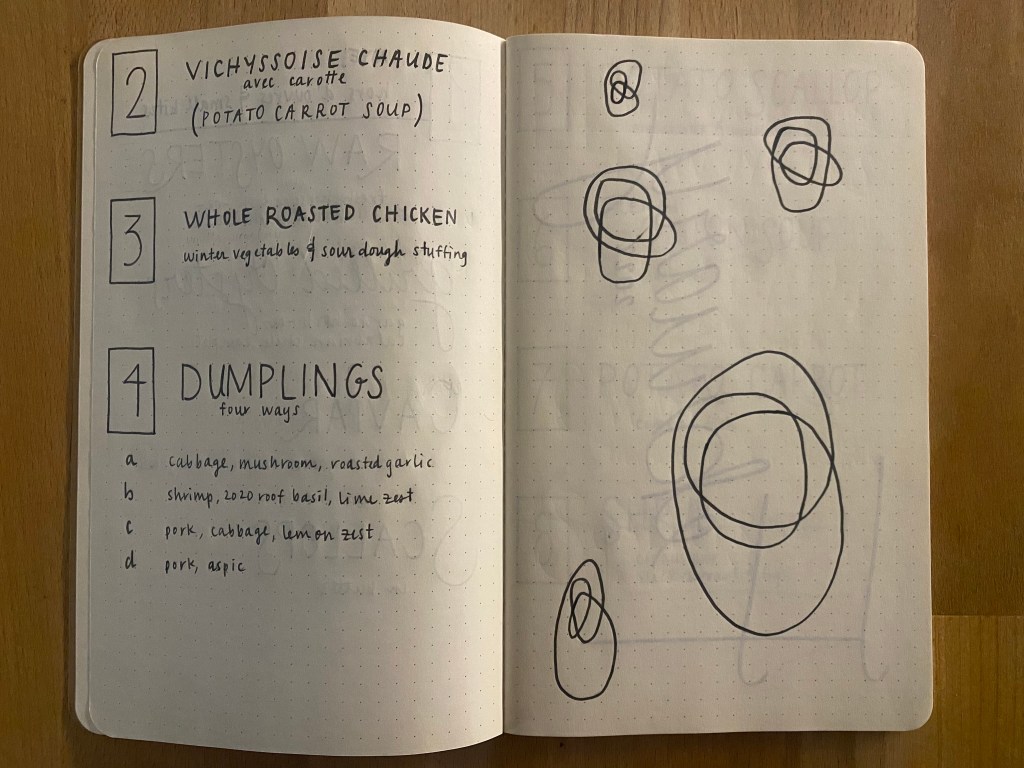 2 VICHYSSOISE CHAUDE
avec carotte
(POTATO CARROT SOUP)
3 WHOLE ROASTED CHICKEN
winter vegetables & sour dough stuffing
4 DUMPLINGS
four ways
a cabbage, mushroom, roasted garlic
b shrimp, 2020 roof basil, lime zest
c pork, cabbage, lemon zest
d pork, aspic